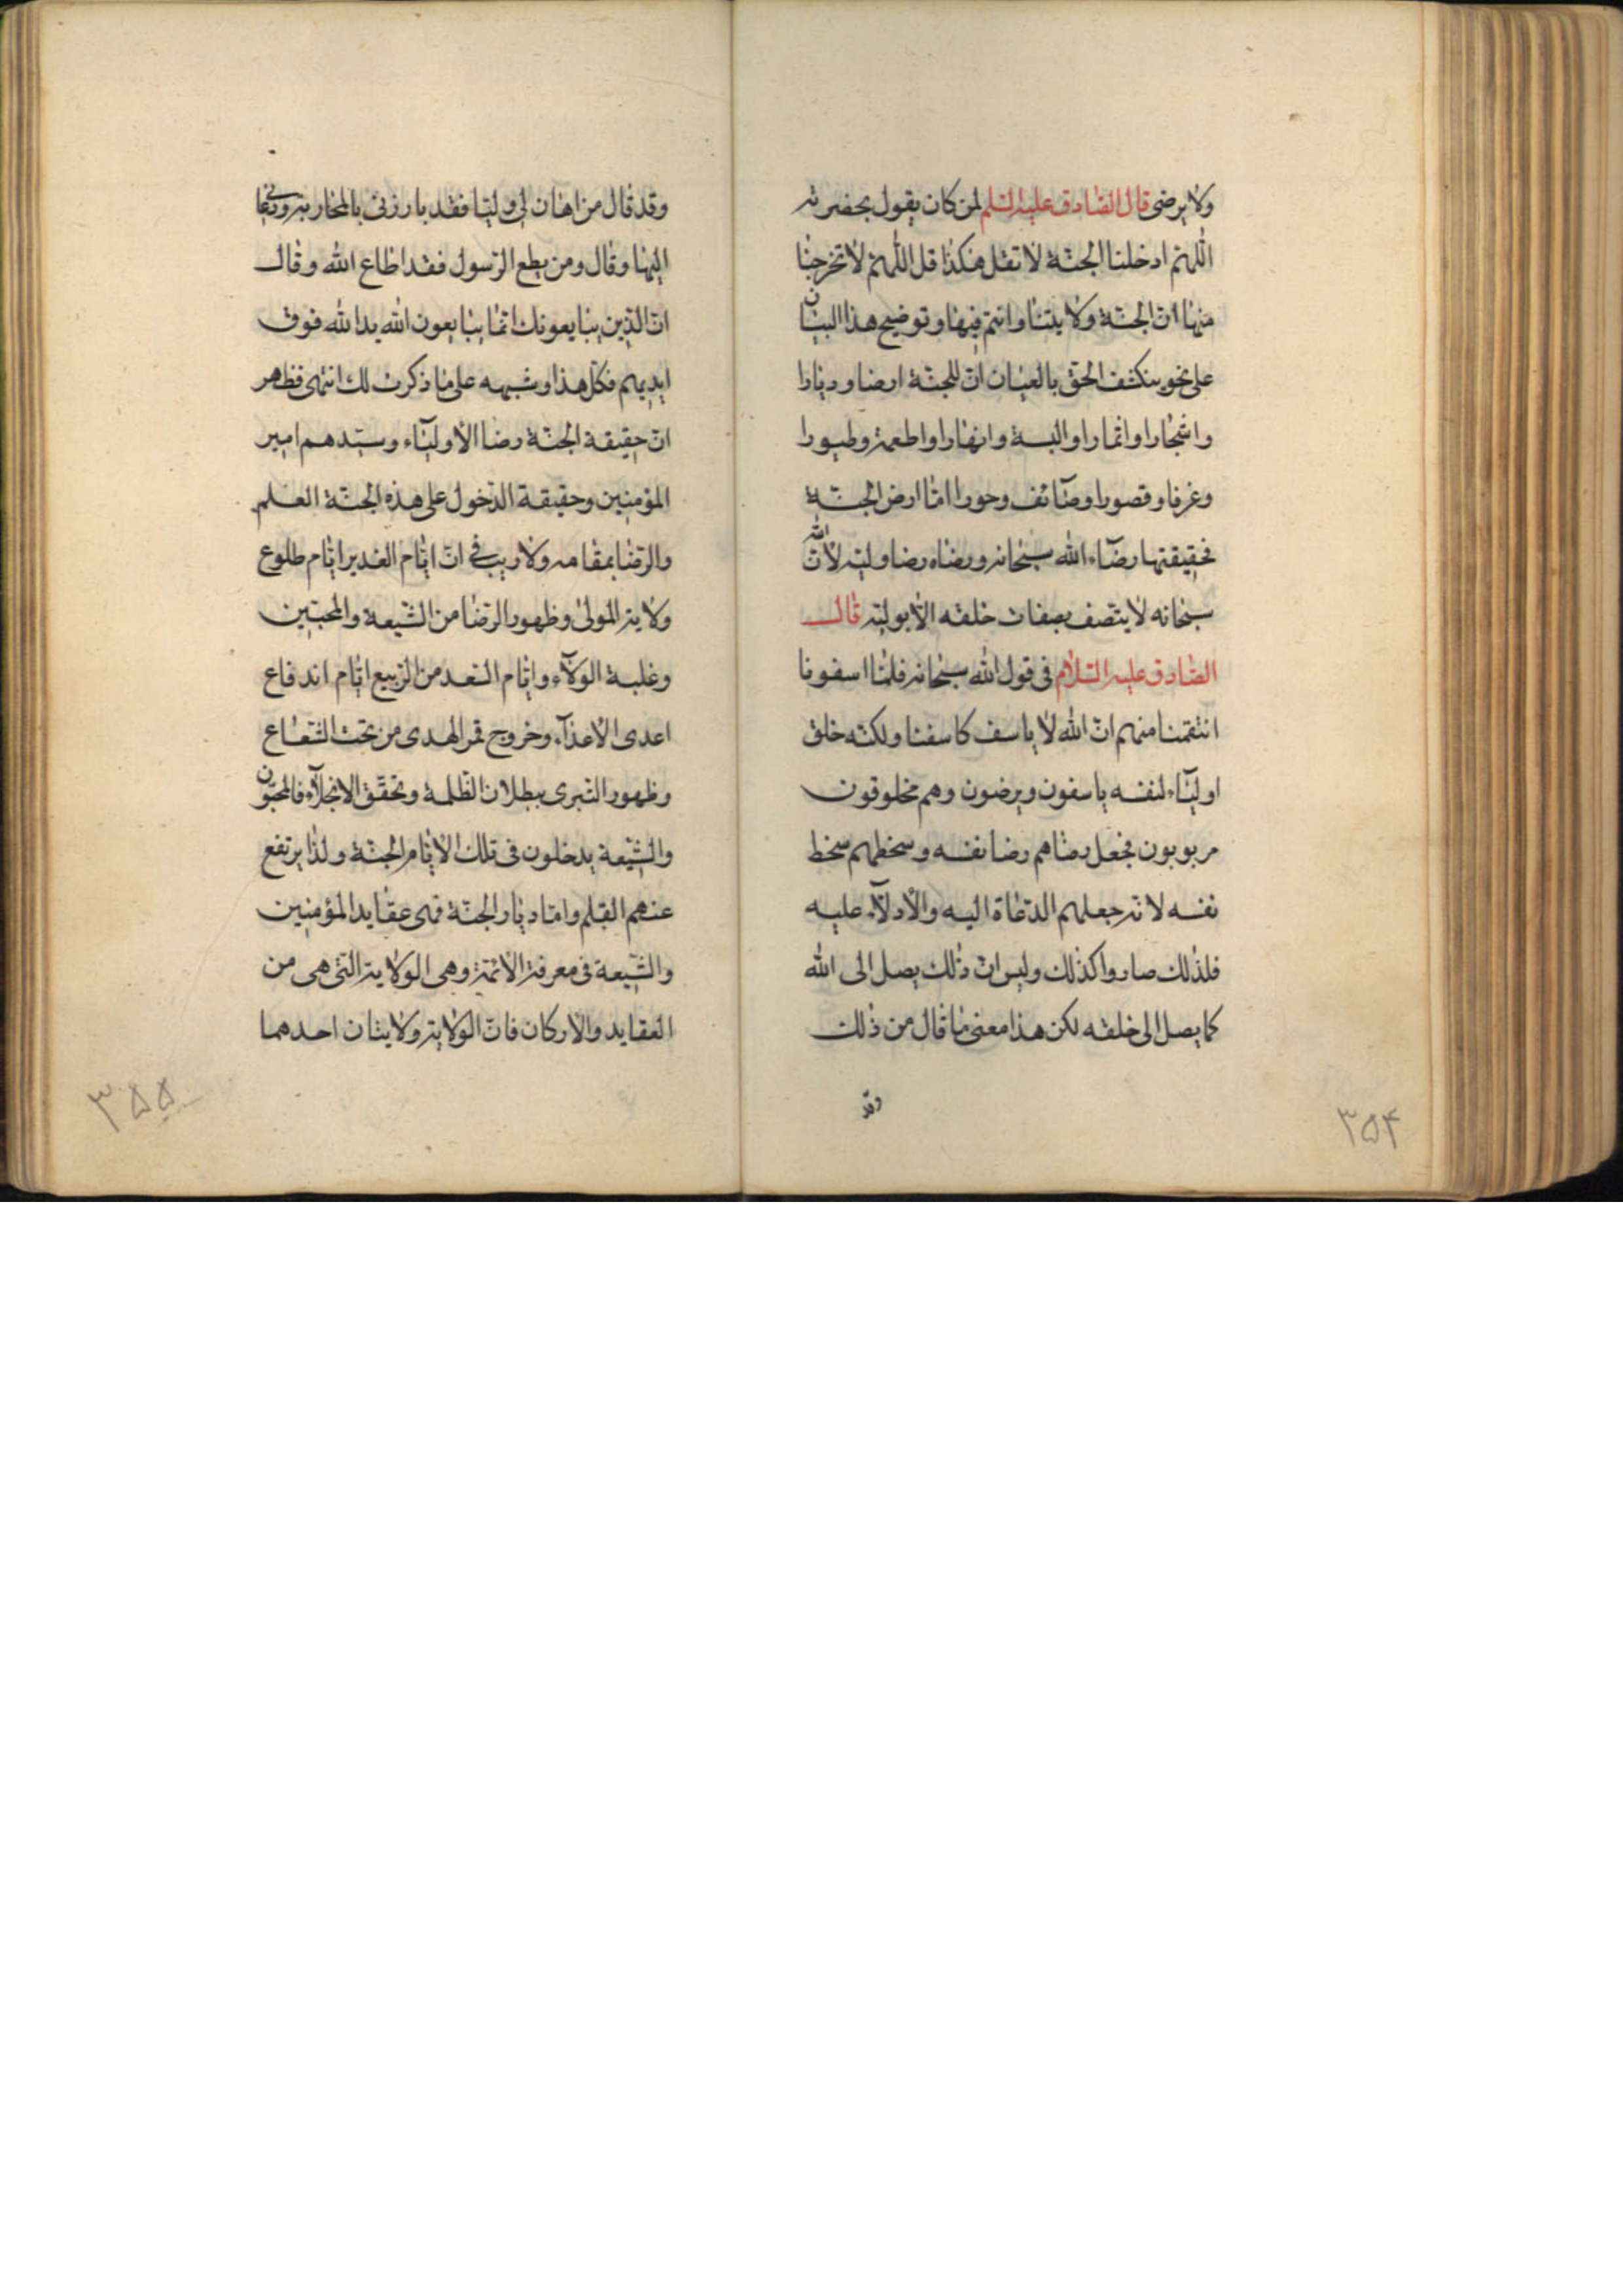 ولا يرضى قال الصادق عليه السلم لمن كان يقول بحضرته
اللهم ادخلنا الجنة لا تقل هكذا قل اللهم لا تخرجنا
منها ان الجنة ولايتنا وانتم فيها وتوضيح هذا البيان
على نحو ينكشف الحق بالعيان ان للجنة ارضا وديارا
واشجارا واثمارا والبسة وانهارا واطعمة وطيورا
وغرفا وقصورا وصائف وحورا اما ارض الجنة
فحقيقتها رضاء الله سبحانه ورضاه رضا وليه لان الله
سبحانه لا يتصف بصفات خلقه الا بوليه قال
الصادق عليه السلام فى قول الله سبحانه فلما اسفونا
انتقمنا منهم ان الله لا ياسف كاسفنا ولكنه خلق
اولياء لنفسه ياسفون ويرضون وهم مخلوقون
مربوبون فجعل رضاهم رضا نفسه وسخطهم سخط
نفسه لانه جعلهم الدعاة اليه والأدلاء عليه
فلذلك صاروا كذلك وليس ان ذلك يصل الى الله
كما يصل الى خلقه لكن هذا معنى ما قال من ذلك
وقد
۳۵۴
وقد قال من اهان لى وليا فقد بارزنى بالمحاربة ودعانى
اليها وقال ومن يطع الرسول فقد اطاع الله وقال
ان الذين يبايعونك انما يبايعون الله يد الله فوق
ايديهم فكل هذا وشبهه على ما ذكرت لك انتهى فظهر
ان حقيقة الجنة رضا الأولياء وسيدهم امير
المؤمنين وحقيقة الدخول على هذه الجنة العلم
والرضا بمقامه ولا ريب فى ان ايام الغدير ايام طلوع
ولاية المولى وظهور الرضا من الشيعة والمحبين
وغلبة الولاء وايام السعد من الربيع ايام اندفاع
اعدى الأعداء وخروج قمر الهدى من تحت الشعاع
وظهور التبرى ببطلان الظلمة وتحقق الانجلاء فالمحبون
والشيعة يدخلون فى تلك الأيام الجنة ولذا يرتفع
عنهم القلم واما ديار الجنة فهى عقايد المؤمنين
والشيعة فى معرفة الائمة وهى الولاية التى هى من
العقايد والاركان فان الولاية ولايتان احدهما
۳۵۵